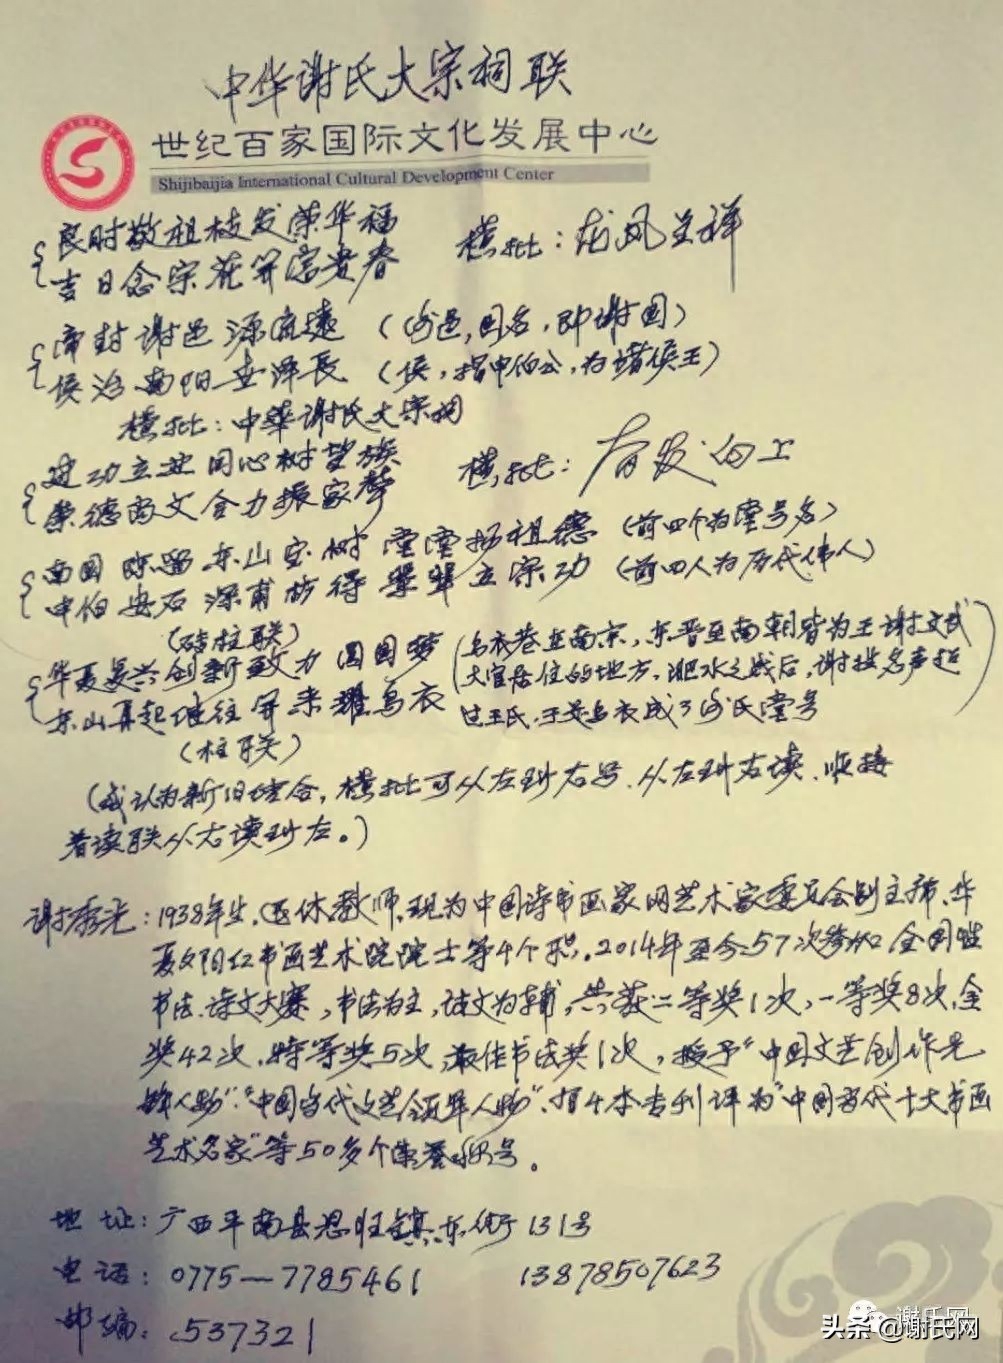 中华谢氏大宗祠联
世纪百家国际文化发展中心
Shijibaijia International Cultural Development Center
良时敬祖枝发荣华福
吉日念宗花开富贵春
横批：龙凤呈祥
帝封谢邑源流远（谢邑，国名，即谢国）
侯治南阳世泽長（侯，指申伯公，为诸侯王）
横批：中華谢氏大宗祠
建功立业同心树望族
崇德尚文合力振家声
横批：奋发向上
南国陈留东山宝树堂堂扬祖德（前四个为堂号名）
申伯安石深甫枋得翠翠立宗功（前四人为历代伟人）
（砖柱联）
华夏复兴创新致力圆国梦
东山再起继往开来耀乌衣
（乌衣巷在南京，东晋至南朝皆为王谢文武
大官居住的地方，淝水之战后，谢族名声超
过王氏，于是乌衣成了谢氏堂号）
（柱联）
（我认为新旧结合，横批可从左到右写、从左到右读、
着读联从右读到左。）
谢秀光：1938年生，退休教师，现为中国诗书画家网艺术家委员会副主席、华
夏夕阳红书画艺术院院士等4个职。2014年至今57次参加全国性
书法、诗文大赛，书法为主，诗文为辅，共获二等奖1次，一等奖8次，金
奖42次，特等奖5次，最佳书法奖1次，授予"中国文艺创作先
锋人物"、"中国当代文艺领军人物"、有4本专刊评为"中国当代十大书画
艺术名家"等50多个荣誉称号。
地址：广西平南县思旺镇东街131号
电话：0775—7785461 13878507623
邮编：537321
谢氏网
头条@谢氏网